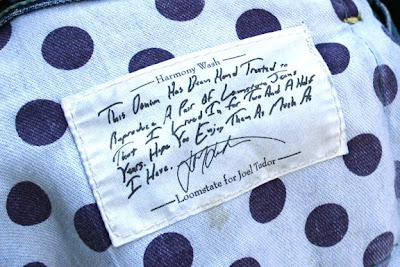 Harmony Wash
This Denim Has Been Hand Treated to
Reproduce A Pair Of Loomstate Jeans
That I Lived In For Two And A Half
Years. Hope You Enjoy Them As Much As
I Have.
Loomstate for Joel Tudor